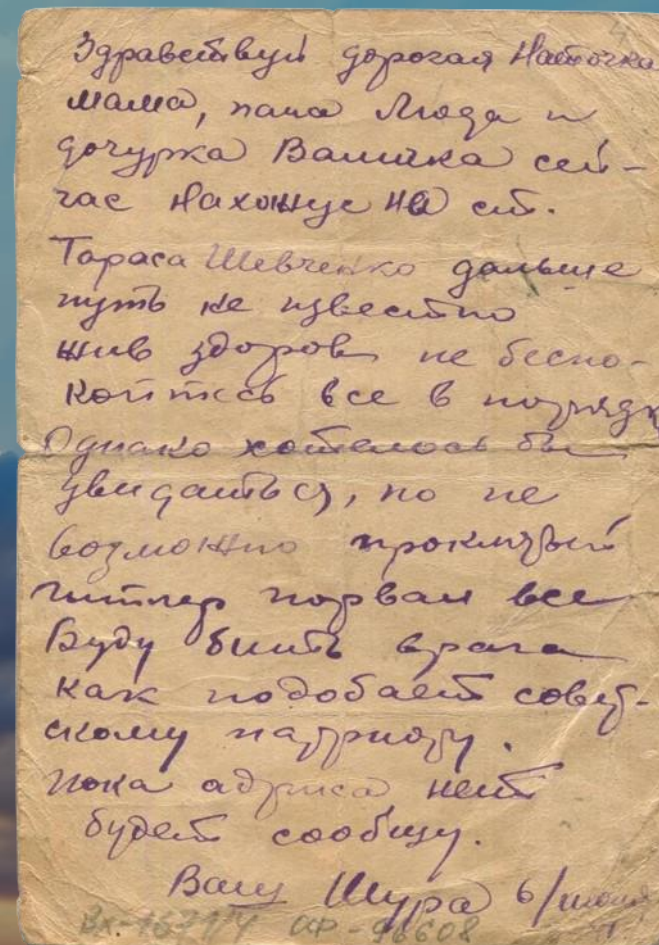 Здравствуй дорогая Наточка
мама, папа Люда и
дочурка Валичка сей-
час нахожусь на ст.
Тараса Шевченко дальше
путь не известно
жив здоров не беспо-
койтесь все в порядк
Однако хотелось бы
увидаться, но не
возможно проклятый
гитлер порвал все
Буду бить врага
как подобает совет-
скому патриоту.
пока адриса нет
будет сообщу.
Ваш Шура 6/
Вх-1671/4 ОФ-96608